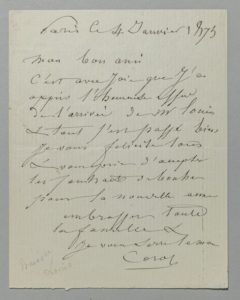 Paris ce 4 Janvier 1873
mon bon ami
C'est avec joie que j'ai
appris l'heureuse
de l'arrivée de Mr Louis
& tout s'est passé bien
je vous félicite tous
& vous prie d'accepter
les souhaits de bonheur
pour la nouvelle
embrassez toute
la famille &
je vous serre la main
Corot